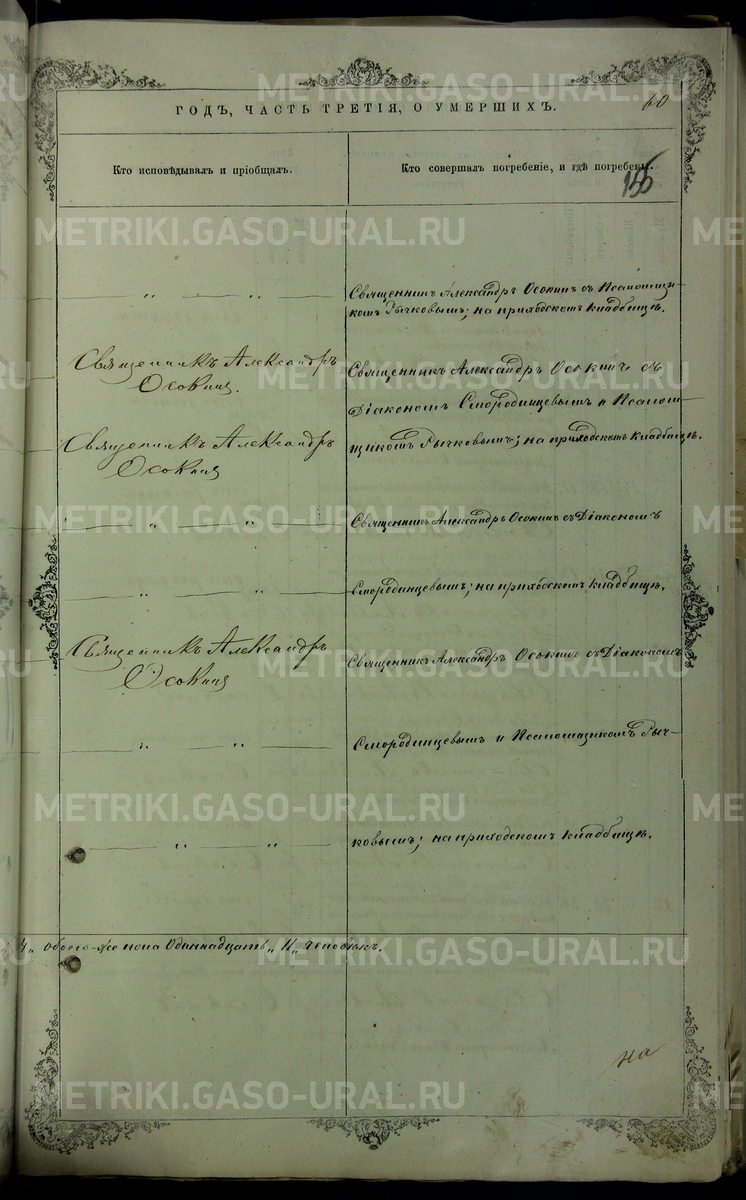 60
ГОДЪ, ЧАСТЬ ТРЕТІЯ, О УМЕРШИХЪ.
Кто исповѣдывалъ и пріобщалъ.
Кто совершалъ погребеніе, и гдѣ погребены.
METRIKI.GASO-URAL.RU
„ „
Священникъ Александръ Осокинъ съ Псаломщи-
комъ Рычковымъ; на приходскомъ кладбищѣ.
Священникъ Александръ
Осокинъ.
Священникъ Александръ Осокинъ съ
Діакономъ Смородинцевымъ и Псалом-
Священникъ Александръ
Осокинъ
щикомъ Рычковымъ; на приходскомъ кладбищѣ.
„ „
Священникъ Александръ Осокинъ съ Діакономъ
„ „
Смородинцевымъ; на приходскомъ кладбищѣ.
Священникъ Александръ
Осокинъ
Священникъ Александръ Осокинъ съ Діакономъ
„ „
Смородинцевымъ и Псаломщикомъ Рыч-
„ „
ковымъ; на приходскомъ кладбищѣ.
обоего-же пола Одиннадцать „11„ человѣкъ.
на